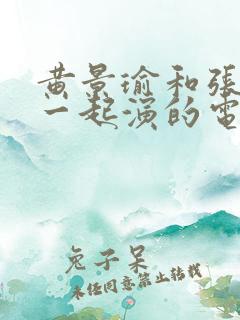 黄景瑜和張
一起演的電
兔子呆
未经同意禁止转载